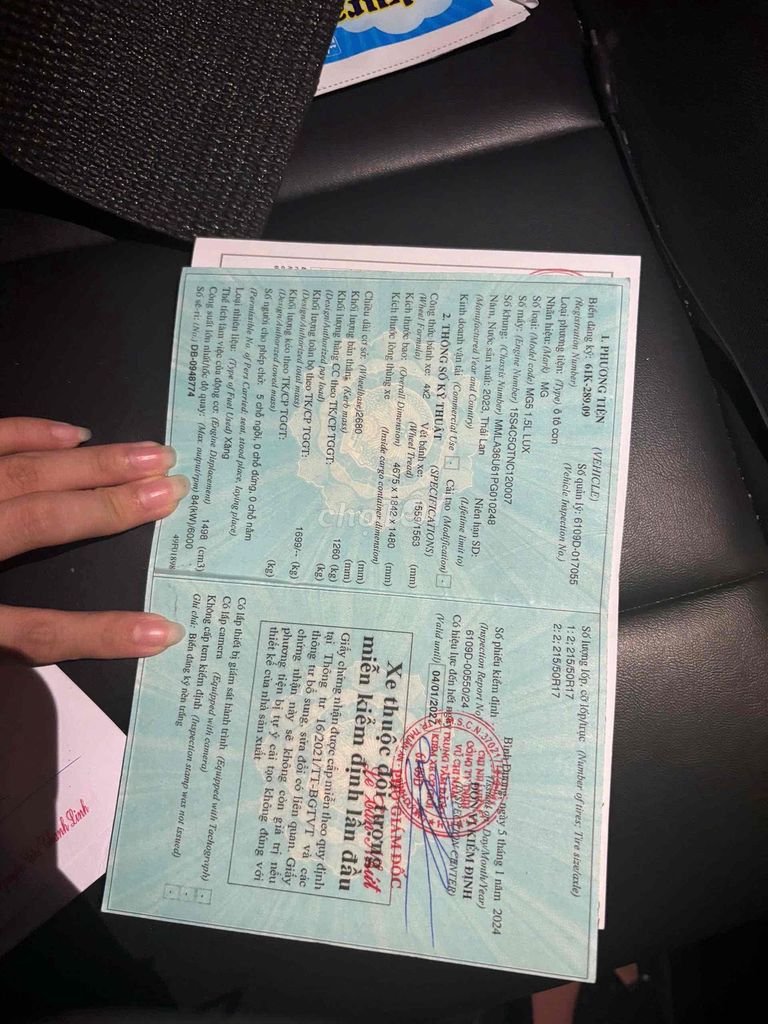 1. PHƯƠNG TIỆN (VEHICLE)
Biển đăng ký: 61K-289.09 Số quản lý: 6109D-017055
(Registration Number) (Vehicle Inspection No.)
Loại phương tiện: (Type) ô tô con
Nhãn hiệu: (Mark) MG
Số loại: (Model code) MG5 1.5L LUX
Số máy: (Engine Number) 15S4C5QTNC120007
Số khung: (Chassis Number) MMLA36U61PG010248
Năm, Nước sản xuất: 2023, Thái Lan Niên hạn SD:
(Manufactured Year and Country) (Lifetime limit to)
Kinh doanh vận tải: (Commercial Use) - Cải tạo (Modification) -
2. THÔNG SỐ KỸ THUẬT (SPECIFICATIONS)
Công thức bánh xe: 4x2 Vết bánh xe: 1559/1563 (mm)
(Wheel Formula) (Wheel Tread)
Kích thước bao: (Overall Dimension) 4675 x 1842 x 1480 (mm)
Kích thước lòng thùng xe
(Inside cargo container dimension) (mm)
Chiều dài cơ sở: (Wheelbase) 2680 (mm)
Khối lượng bản thân: (Kerb mass) 1260 (kg)
Khối lượng hàng CC theo TK/CP TGGT: (kg)
(Design/Authorized pay load)
Khối lượng toàn bộ theo TK/CP TGGT: 1699/-- (kg)
(Design/Authorized total mass)
Khối lượng kéo theo TK/CP TGGT: (kg)
(Design/Authorized towed mass)
Số người cho phép chở: 5 chỗ ngồi, 0 chỗ đứng, 0 chỗ nằm
(Permissible No. of Pers Carried: seat, stood place, laying place)
Loại nhiên liệu: (Type of Fuel Used) Xăng
Thể tích làm việc của động cơ: (Engine Displacement) 1498 (cm3)
Công suất lớn nhất/tốc độ quay: (Max. output/rpm) 84(kW)/6000
Số sê-ri: (No.) DB-0948774
Số lượng lốp, cỡ lốp/trục (Number of tires; Tire size/axle)
1: 2; 215/50R17
2: 2; 215/50R17
Số phiếu kiểm định
(Inspection Report No)
6109D-00550/24
Có hiệu lực đến hết ngày
(Valid until) 04/01/2027
Bình Dương, ngày 5 tháng 1 năm 2024
ĐƠN VỊ KIỂM ĐỊNH
GIÁM ĐỐC
Xe thuộc đối tượng
miễn kiểm định lần đầu
Giấy chứng nhận được cấp miễn theo quy định
tại Thông tư 16/2021/TT-BGTVT và các
thông tư bổ sung, sửa đổi có liên quan. Giấy
chứng nhận này sẽ không còn giá trị nếu
phương tiện bị tự ý cải tạo không đúng với
thiết kế của nhà sản xuất
Có lắp thiết bị giám sát hành trình (Equipped with Tachograph) -
Có lắp camera (Equipped with camera) -
Không cấp tem kiểm định (Inspection stamp was not issued) -
Ghi chú: Biển đăng ký nền trắng